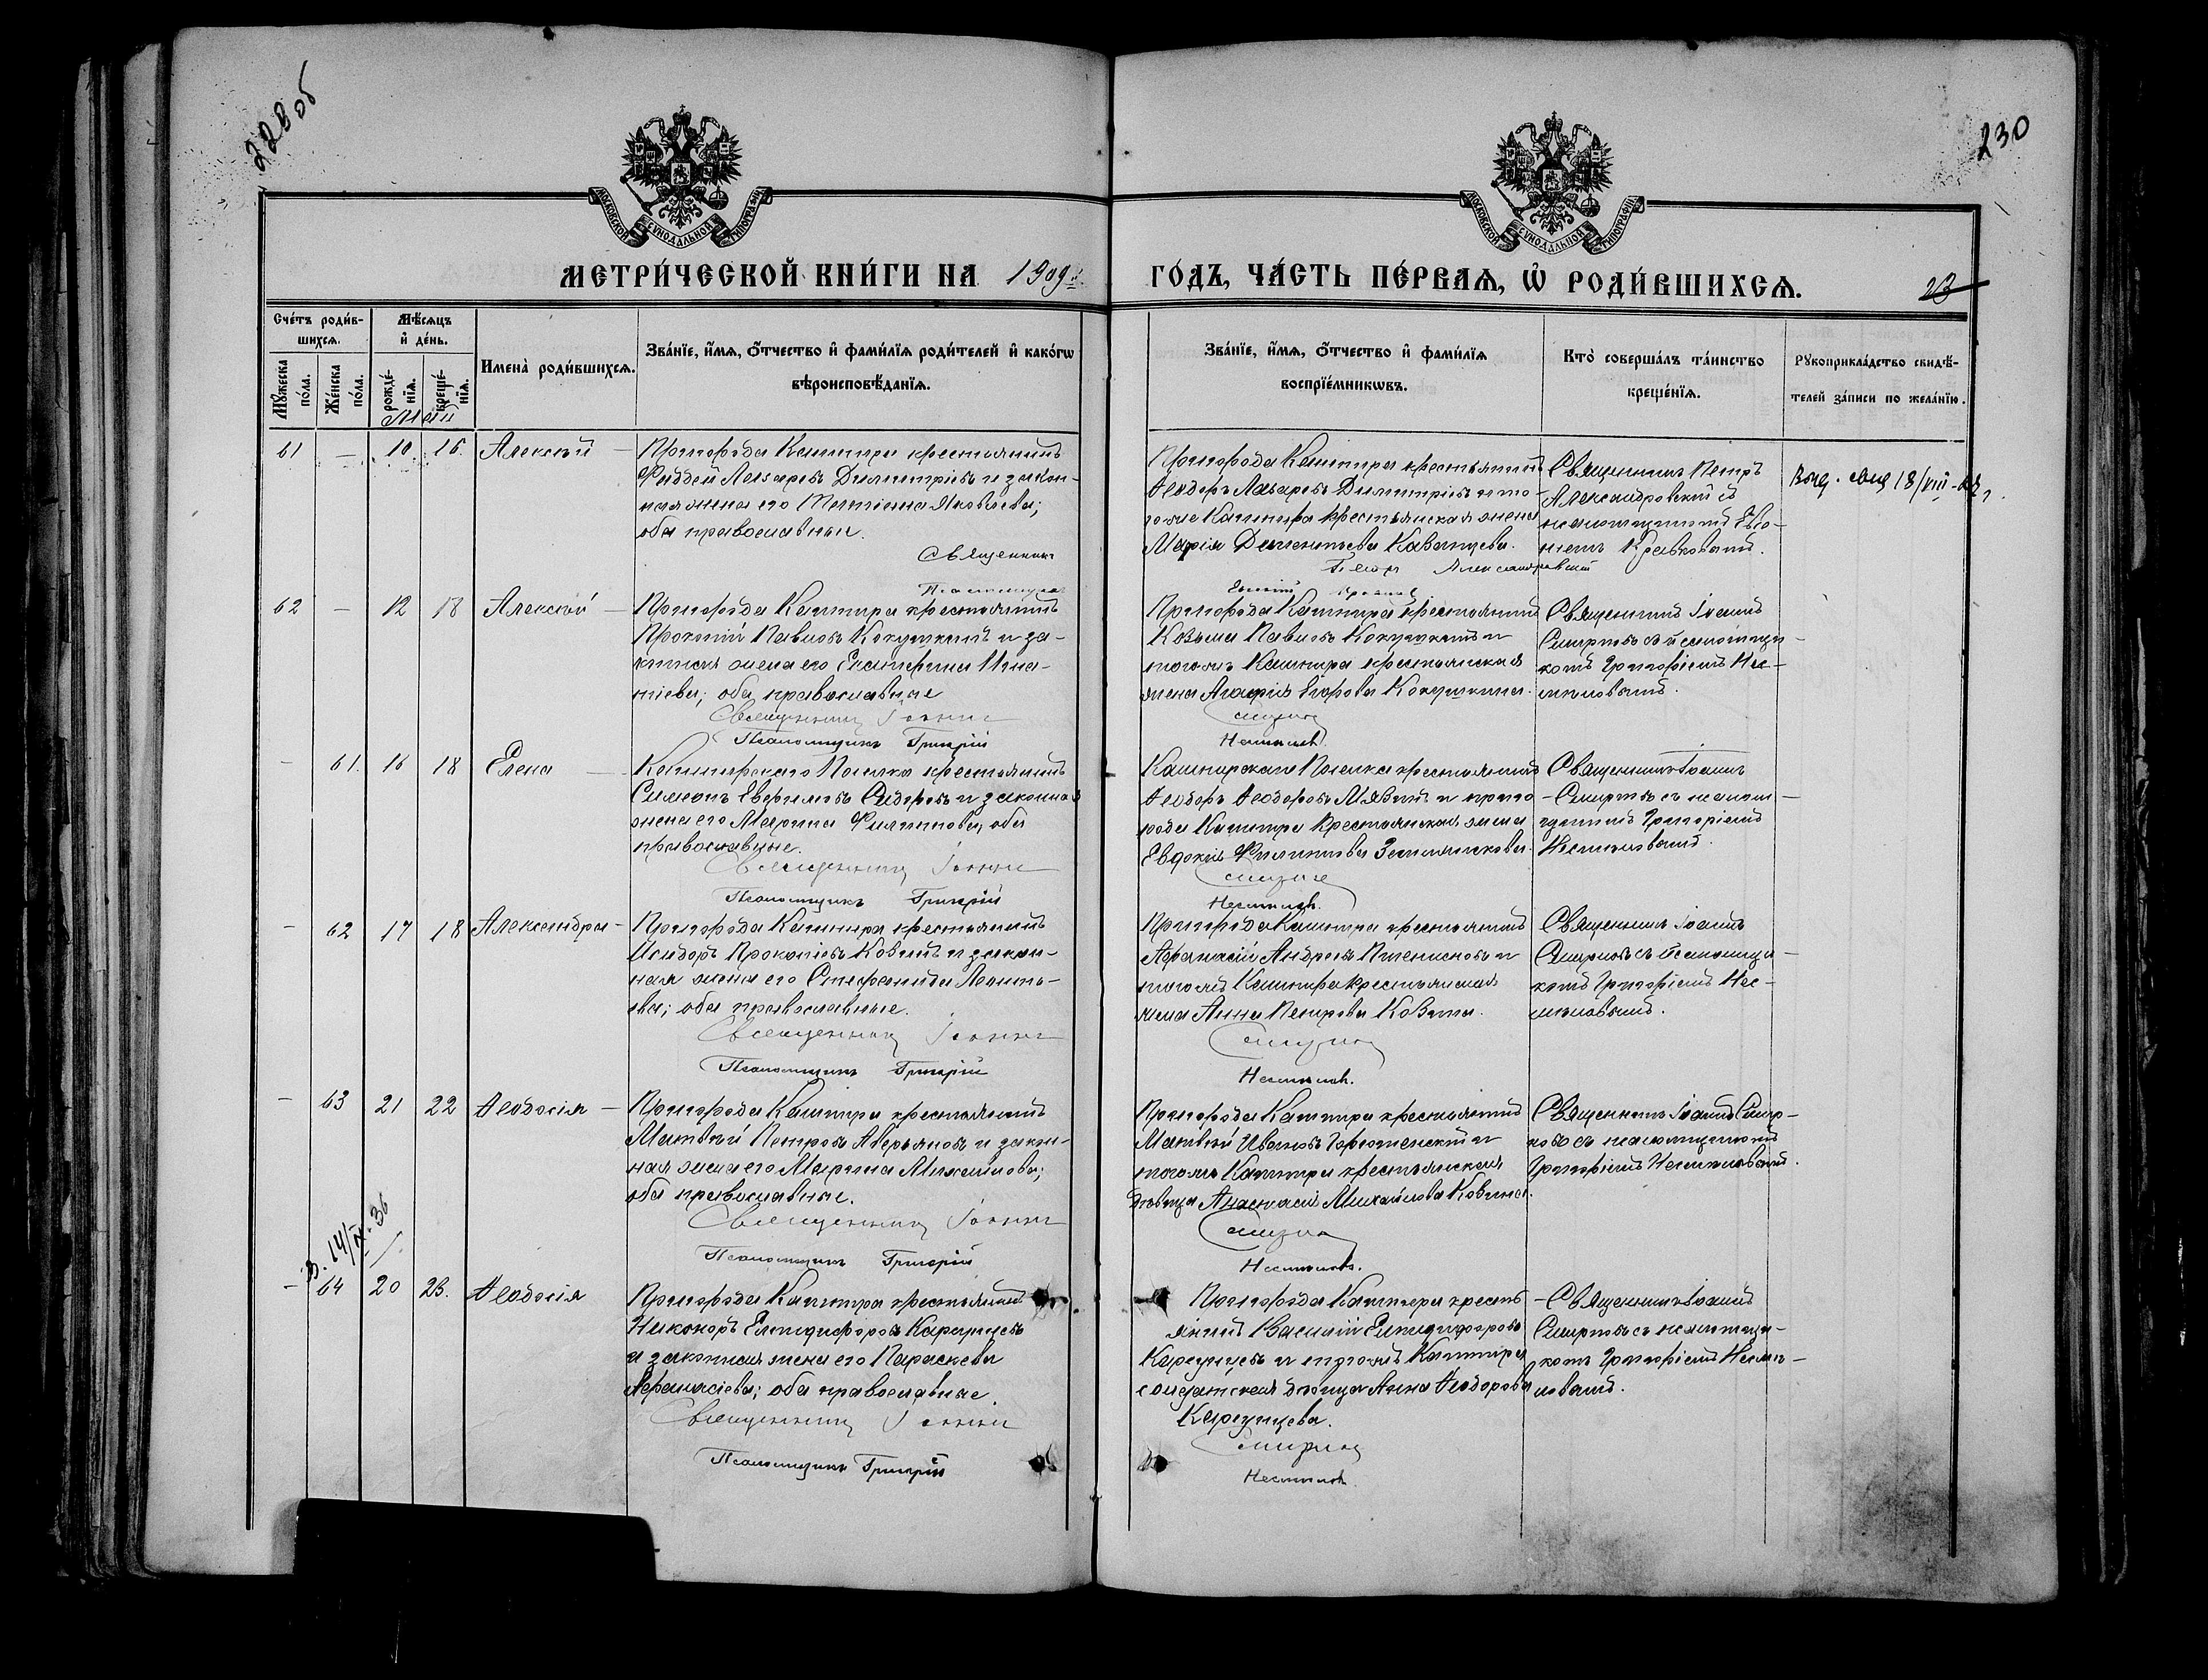 228 об
230
МОСКОВСКОЙ СѴНОДАЛЬНОЙ ТИПОГРАФІИ
МОСКОВСКОЙ СѴНОДАЛЬНОЙ ТИПОГРАФІИ
МЕТРИ́ЧЕСКОЙ КНИ́ГИ НА 1909 й
ГО́ДЪ, ЧА́СТЬ ПЕ́РВАѦ, Ѽ РОДИ́ВШИХСѦ.
23
Сче́тъ роди́в-
шихсѧ.
Мѣ́сѧцъ
и҆ де́нь.
Мꙋ́жеска по́ла.
Же́нска по́ла.
рожде́-
нїѧ.
креще́-
нїѧ.
Имена̀ роди́вшихсѧ.
Зва́нїе, и҆́мѧ, ѻ҆́тчество и҆ фами́лїѧ роди́телей и҆ како́гѡ
вѣроисповѣ́данїѧ.
Зва́нїе, и҆́мѧ, ѻ҆́тчество и҆ фами́лїѧ
воспрїе́мникѡвъ.
Кто̀ соверша́лъ та́инство
креще́нїѧ.
Рꙋкоприкла́дство свидѣ́-
телей за́писи по жела́нїю.
Май
61 — 10 16. Алексѣй — Пригорода Кашпира крестьянинъ
Фаддей Лазаревъ Димитріевъ и закон-
ная жена его Татіана Яковлева;
оба православные.
Священникъ
Псаломщикъ
Пригорода Кашпира крестьянинъ
Ѳеодоръ Лазаревъ Димитріевъ и то-
гоже Кашпира крестьянская жена
Марія Дементьева Кавалцева.
Петръ Александровскій
Евгеній
Священникъ Петръ
Александровскій съ
псаломщикомъ Евге-
ніемъ
18/VIII
62 — 12 18 Алексѣй — Пригорода Кашпира крестьянинъ
Прокопій Павловъ Кокушкинъ и за-
конная жена его Екатерина Игна-
тіева; оба православные
Священникъ Іоаннъ
Псаломщикъ Григорій
Пригорода Кашпира крестьянинъ
Козьма Павловъ Кокушкинъ и
тогоже Кашпира крестьянская
жена Агафія Егорова Кокушкина.
Смирнов
Несмѣлов.
Священникъ Іоаннъ
Смирновъ съ псаломщи-
комъ Григоріемъ Нес-
мѣловымъ.
— 61. 16 18 Елена — Кашпирскаго Поселка крестьянинъ
Симеонъ Евфимовъ Сидоровъ и законная
жена его Марина Филиппова; оба
православные.
Священникъ Іоаннъ
Псаломщикъ Григорій
Кашпирскаго Поселка крестьянинъ
Ѳеодоръ Ѳеодоровъ Мявинъ и приго-
рода Кашпира крестьянская жена
Евдокія Филиппова
Смирнов
Несмѣлов.
Священникъ Іоаннъ
Смирновъ съ псалом-
щикомъ Григоріемъ
Несмѣловымъ.
— 62 17 18 Александра — Пригорода Кашпира крестьянинъ
Исидоръ Прокопіевъ Ковинъ и закон-
ная жена его Стефанида Леонть-
ева; оба православные.
Священникъ Іоаннъ
Псаломщикъ Григорій
Пригорода Кашпира крестьянинъ
Афанасій Андреевъ Пшенисновъ и
тогоже Кашпира крестьянская
жена Анна Петрова Ковина.
Смирнов
Несмѣлов.
Священникъ Іоаннъ
Смирновъ съ псаломщи-
комъ Григоріемъ Нес-
мѣловымъ.
— 63 21 22 Ѳеодосія — Пригорода Кашпира крестьянинъ
Матвѣй Петровъ Аверьяновъ и закон-
ная жена его Марина Михаилова;
оба православные.
Священникъ Іоаннъ
Псаломщикъ Григорій
Пригорода Кашпира крестьянинъ
Матвѣй Ивановъ и
тогоже Кашпира крестьянская
дѣвица Анастасія Михайлова Ковина.
Смирнов
Несмѣлов.
Священникъ Іоаннъ Смир-
новъ съ псаломщикомъ
Григоріемъ Несмѣловымъ.
в. 14/IX. 36
— 64 20 23. Ѳеодосія Пригорода Кашпира крестьянинъ
Никоноръ Елпидифоровъ Карпунцевъ
и законная жена его Параскева
Афанасіева; оба православные.
Священникъ Іоаннъ
Псаломщикъ Григорій
Пригорода Кашпира кресть-
янинъ Василій Елпидифоровъ
Карпунцевъ и тогоже Кашпира
солдатская дѣвица Анна Ѳеодорова
Карпунцева.
Смирнов
Несмѣлов
Священникъ Іоаннъ
Смирновъ съ псаломщи-
комъ Григоріемъ Несмѣ-
ловымъ.